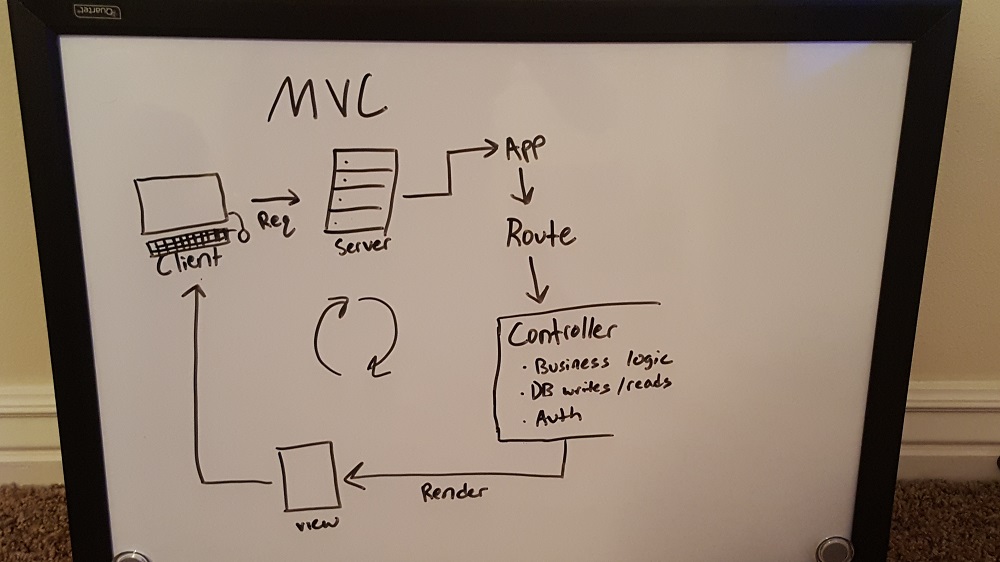 Quartet
MVC
Client
Req
Server
App
Route
Controller
· Business logic
· DB writes/reads
· Auth
Render
view